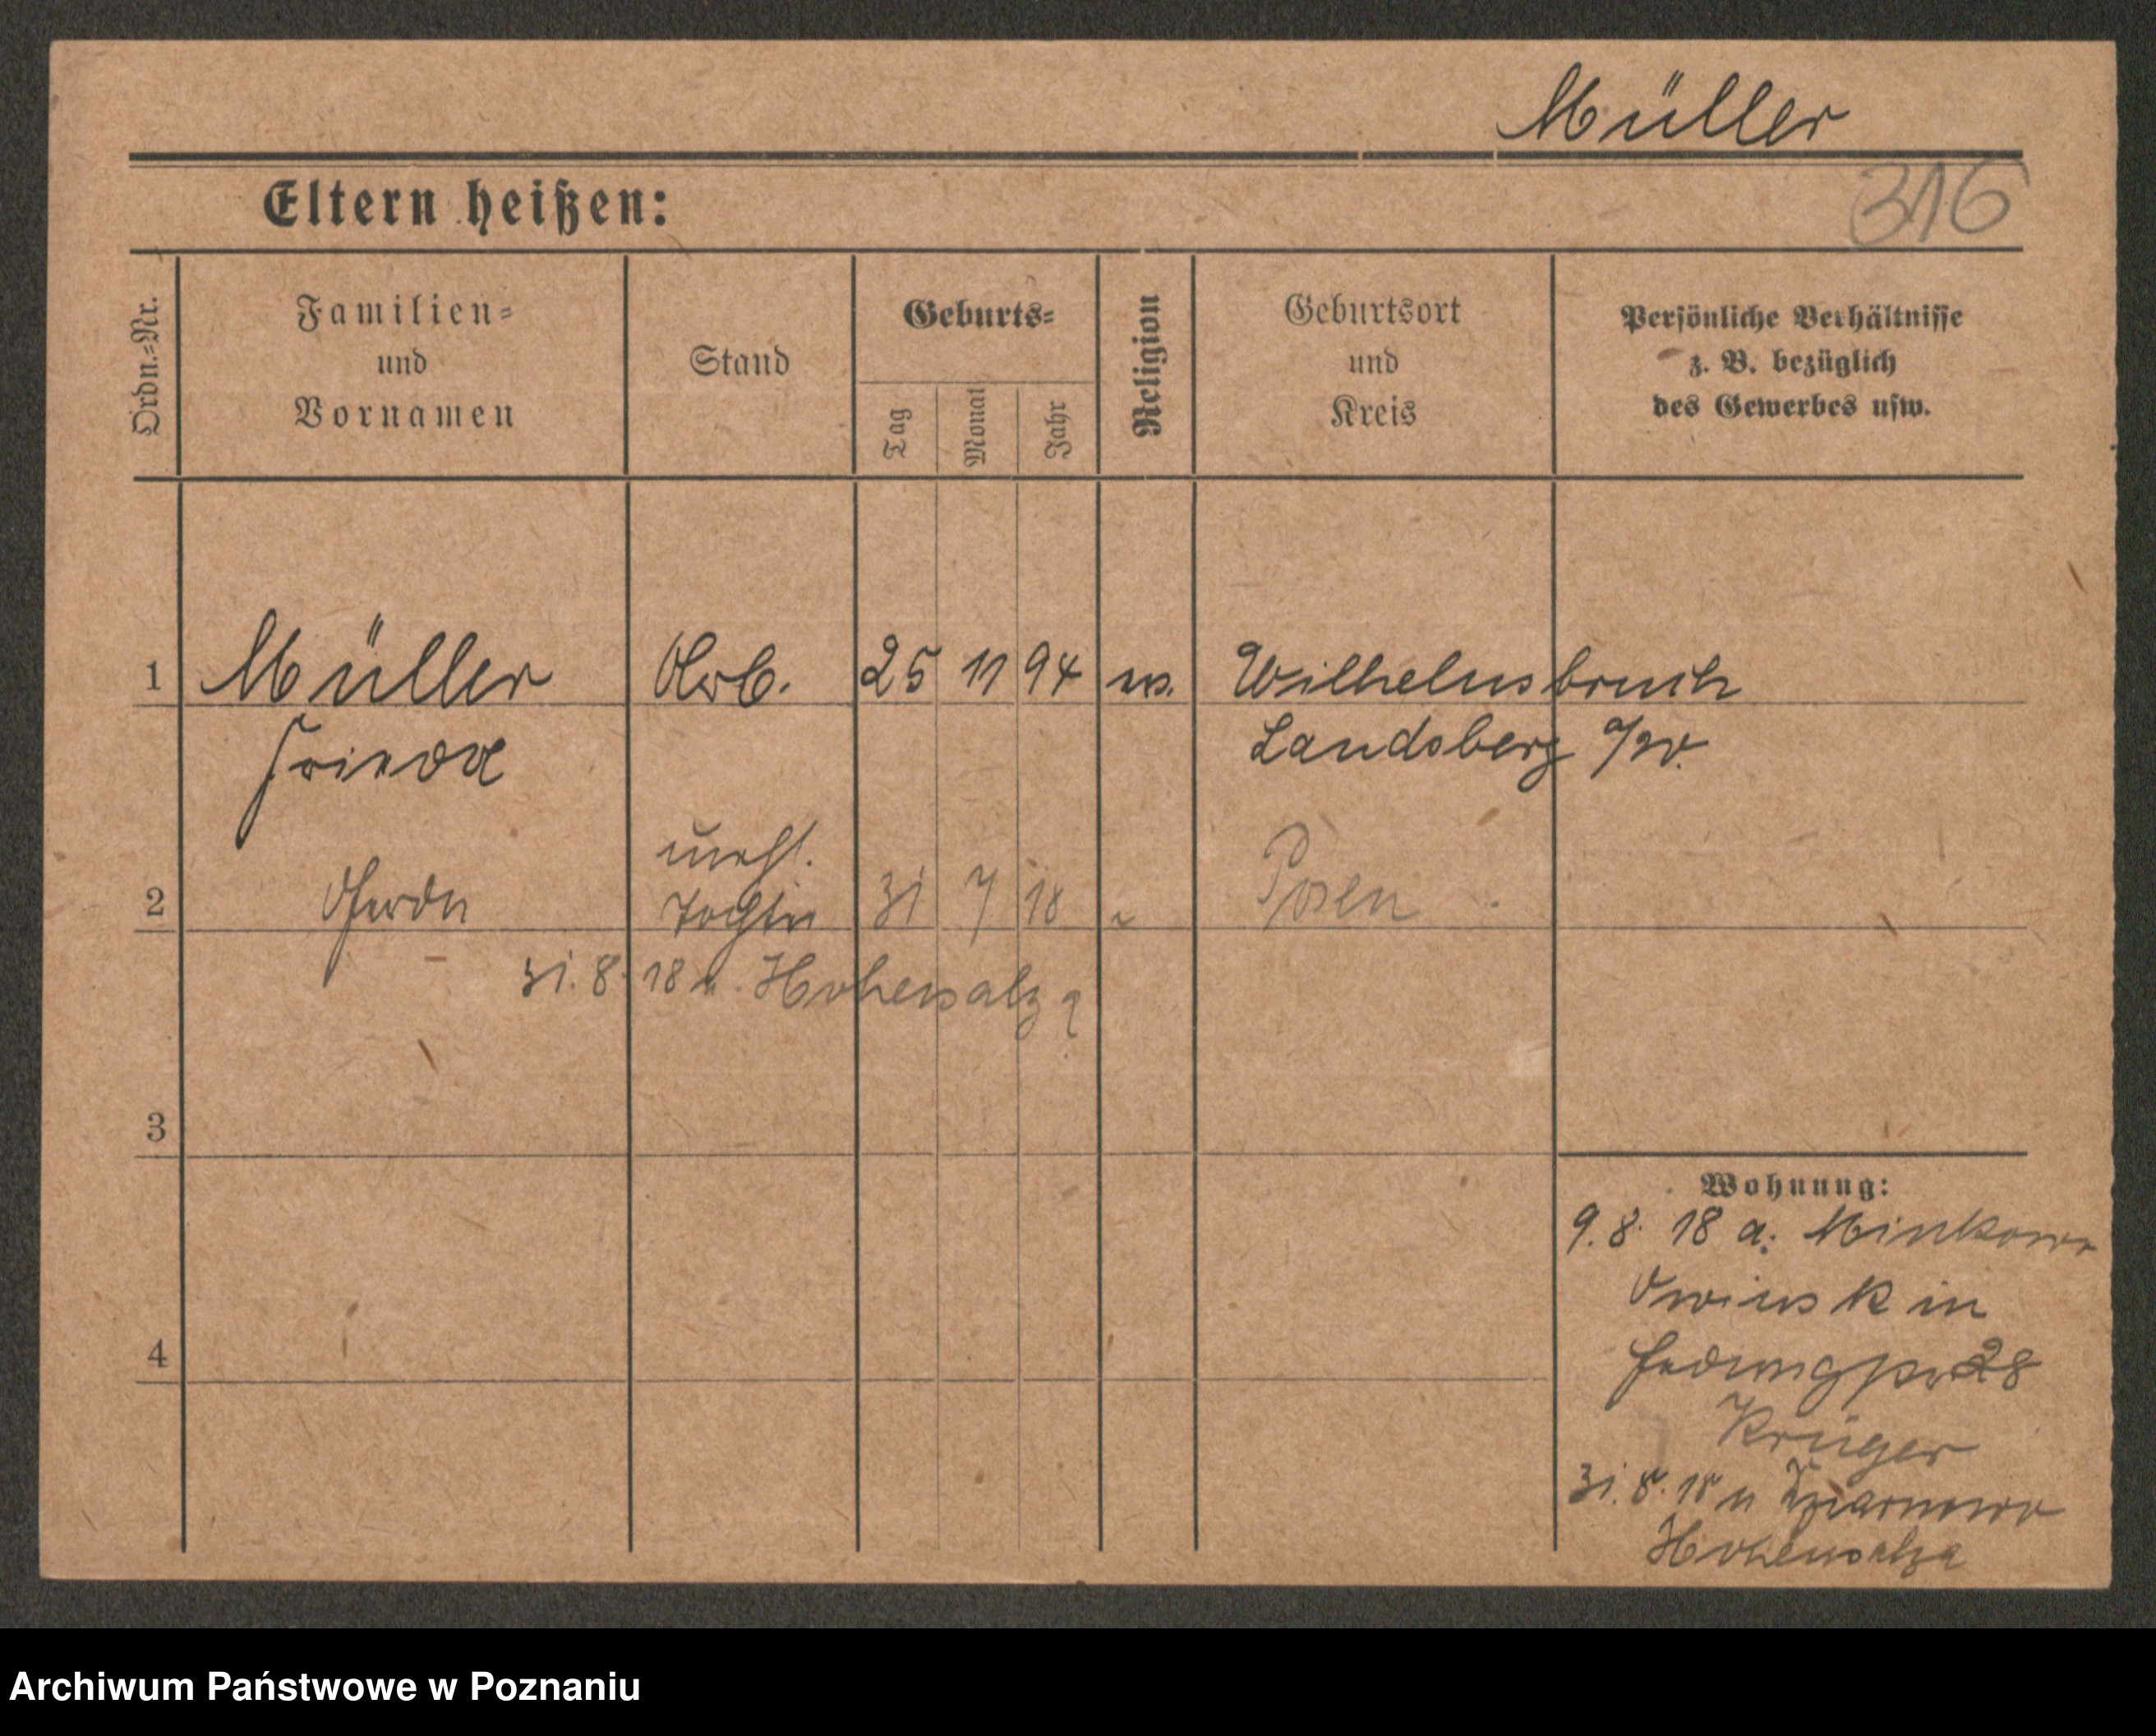 Müller
316
Eltern heißen:
Ordn.=Nr.
Familien=
und
Vornamen
Stand
Geburts=
Tag
Monat
Jahr
Religion
Geburtsort
und
Kreis
Persönliche Verhältnisse
z. B. bezüglich
des Gewerbes usw.
1 Müller Arb. 25 11 94 ev. Wilhelmsbruch
Frieda Landsberg a/W.
unehl.
2 Tochter 31 7 18 Posen
31.8.18 n. Hohensalza
3
4
Wohnung:
9.8.18 a: Minkowo
Owinsk in
28
Krüger
31.8.18 n
Hohensalza
Archiwum Państwowe w Poznaniu